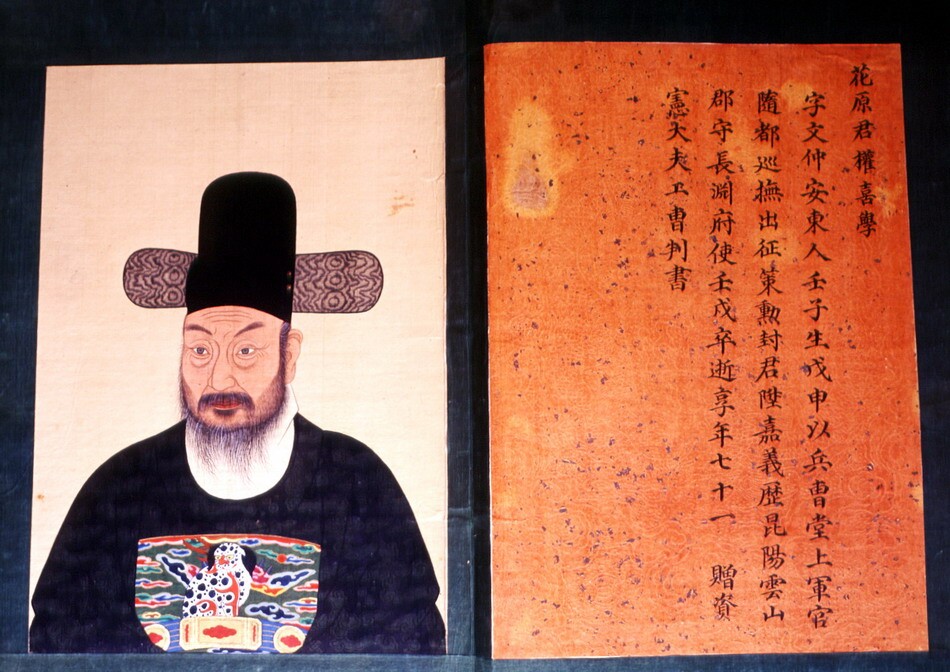 花原君權喜學
字文仲安東人壬子生戊申以兵曹堂上軍官
隨都巡撫出征策勳封君陞嘉義歷昆陽雲山
郡守長淵府使壬戌卒逝享年七十一 贈資
憲大夫工曹判書